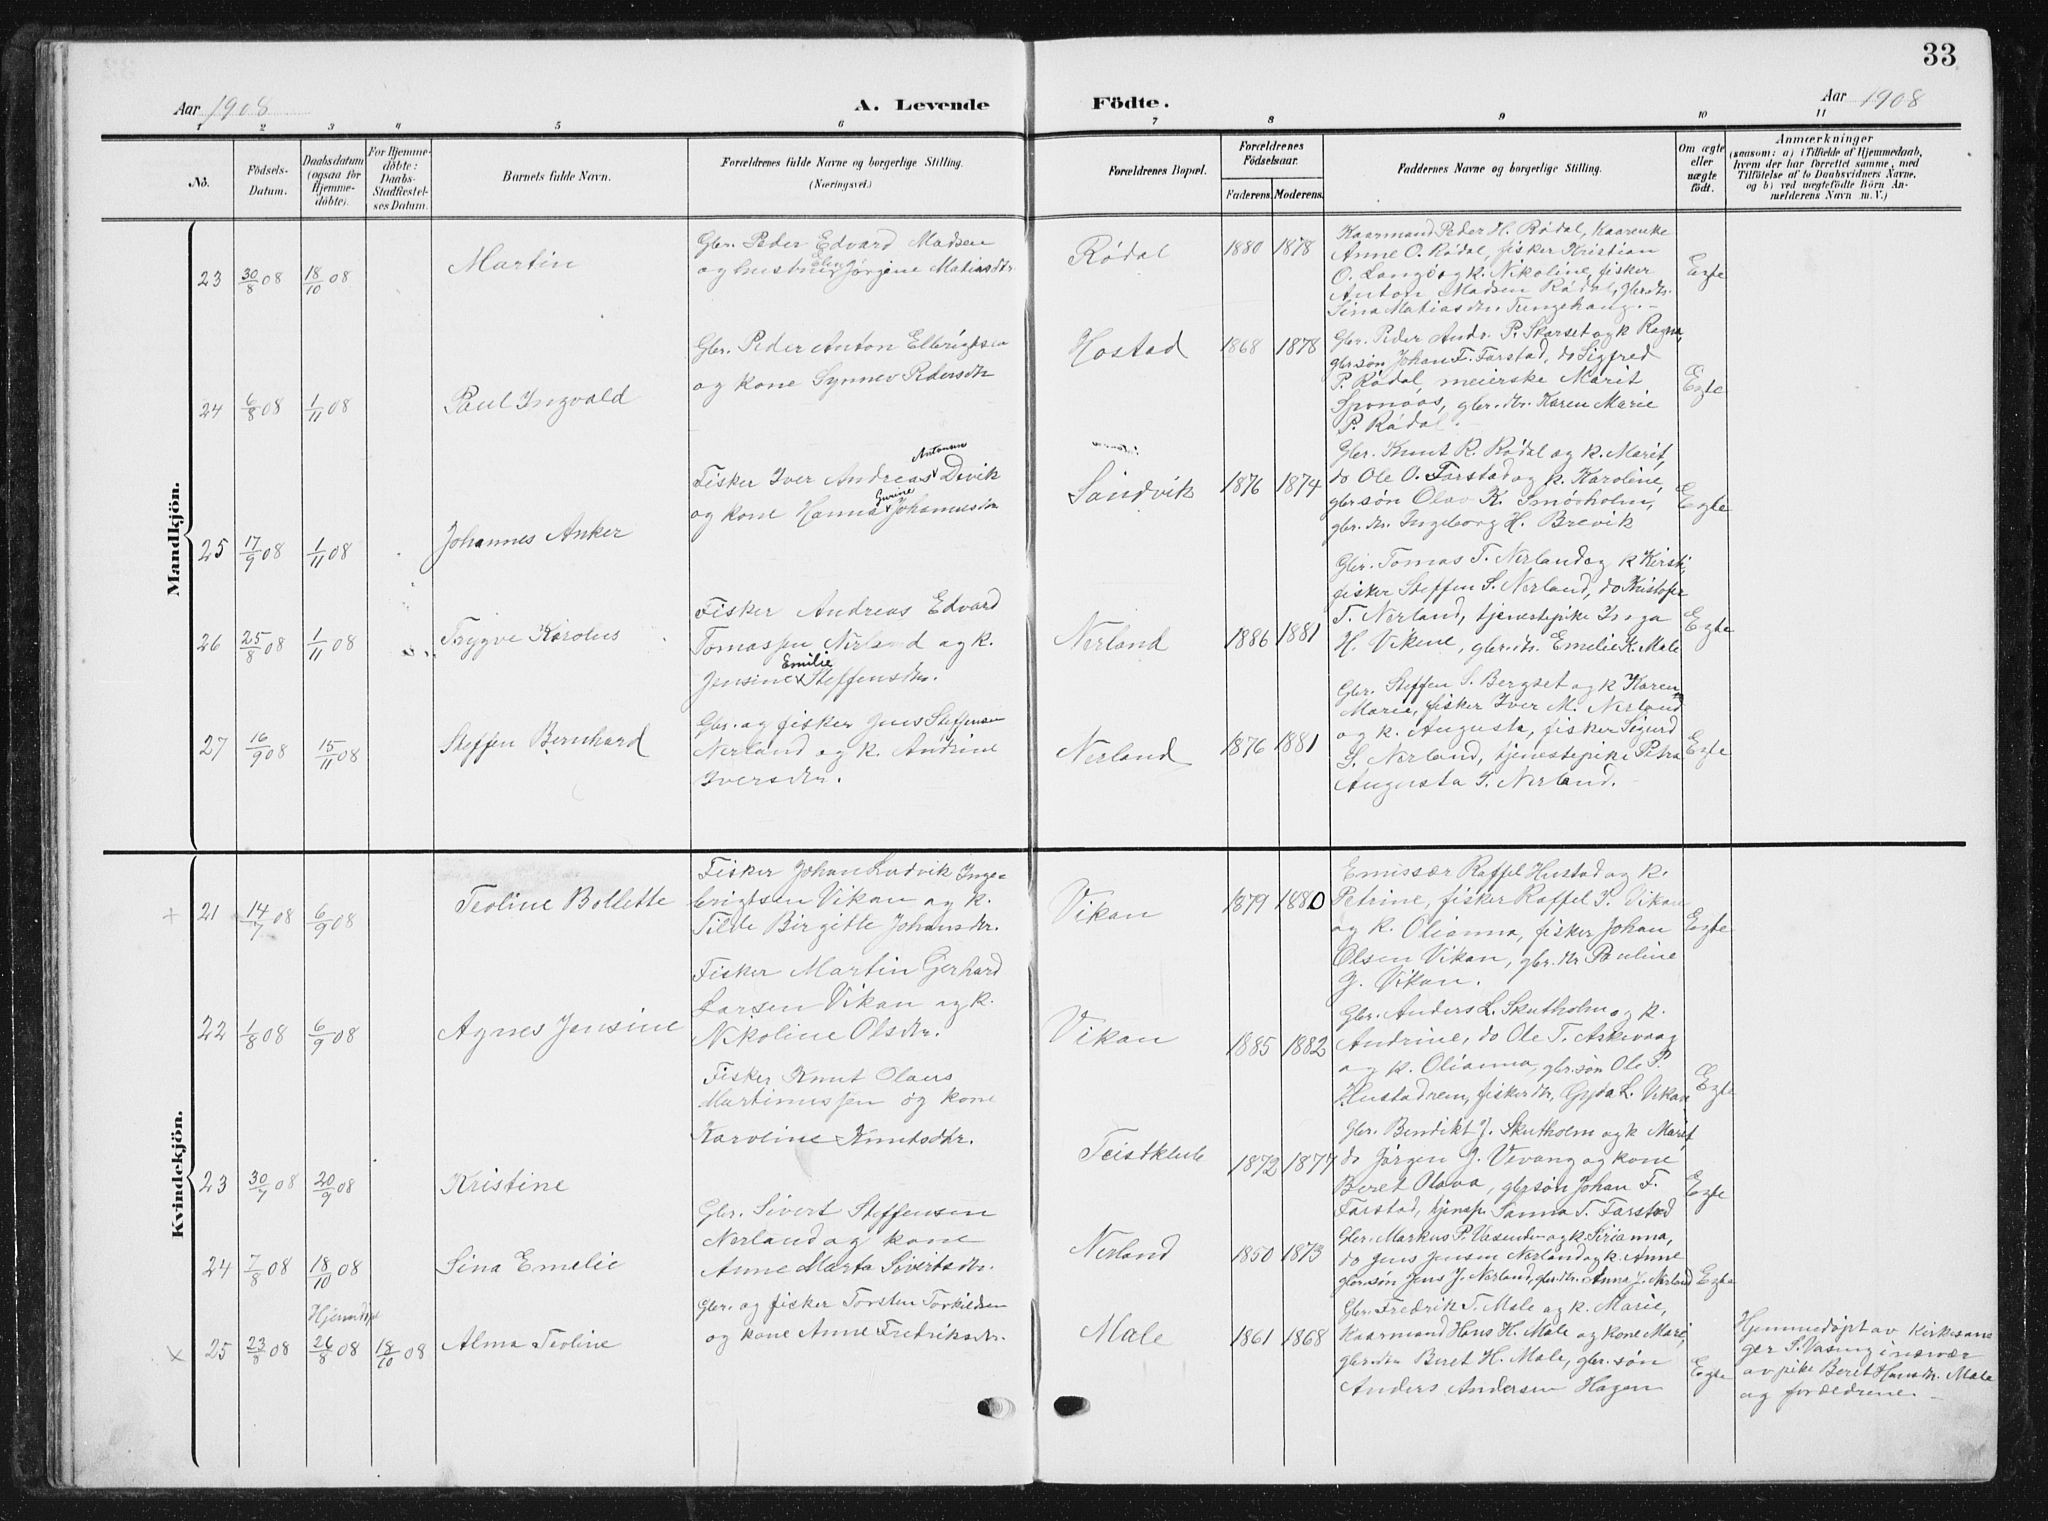 33
Aar 1908
A. Levende
Födte.
Aar 1908
1 2 3 4 5 6 7 8 9 10 11
No.
Födsels-Datum.
Daabsdatum (ogsaa for Hjemme-döbte).
For Hjemme-döbte: Daabs-Stadfæstel-ses Datum.
Barnets fulde Navn.
Forældrenes fulde Navne og borgerlige Stilling.
(Næringsvei.)
Forældrenes Bopæl.
Forældrenes Födselsaar.
Faderens. Moderens.
Faddernes Navne og borgerlige Stilling.
Om ægte eller uægte födt.
Anmærkninger
(saasom: a) i Tilfælde af Hjemmedaab,
hvem der har forrettet samme, med
Tilföielse af to Daabsvidners Navne,
og b) ved uægtefödte Börn An-
melderens Navn m.V.)
Mandkjön.
23 30/8 08 18/10 08 Martin
Gbr. Peder Edvard Madsen
og hustru Elen Jørgine Matiasdtr
Rødal 1880 1878
Kaarmand Peder H. Rødal, Kaarenke
Anne O. Rødal, fisker Kristian
O. Langø og k. Nikoline, fisker
Anton Madsen Rødal, gbr.dtr.
Sina Matiasdtr. Tungehaug. -
Egte
24 6/8 08 1/11 08 Paul Ingvald
Gbr. Peder Anton Ellevigtsen
og kone Synnev Pedersdtr
Hostad 1868 1878
Gbr. Peder Andr. P. Skarset og k Ragna,
gbr.søn Johan F. Farstad, do Sigfred
P. Rødal, meierske Marit
Sponaas, gbr.dtr. Karen Marie
P. Rødal. -
Egte
25 17/9 08 1/11 08 Johannes Anker
Fisker Iver Andreas Antonsen Divik
og kone Hanna Jurine Johannesdtr
Sandvik 1876 1874
Gbr. Knut R. Rødal og k. Marit,
do Ole O. Farstad og k. Karoline,
gbr.søn Olav K. Smørholm,
gbr.dtr. Ingeborg H. Brevik
Egte
26 25/8 08 1/11 08 Trygve Karolus
Fisker Andreas Edvard
Tomassen Nerland og k.
Jensine Emilie Steffensdtr.
Nerland 1886 1881
Gbr. Tomas T. Nerland og k Kirsti,
fisker Steffen S. Nerland, do Kristofer
T. Nerland, tjenestepike Inga
H. Vikene, gbr.dtr. Emelie K. Male
Egte
27 16/9 08 15/11 08 Steffen Bernhard
Gbr. og fisker Jens Steffensen
Nerland og k. Andrine
Iversdtr.
Nerland 1876 1881
Gbr. Steffen S. Bergset og k Karen
Marie, fisker Iver M. Nerland
og k. Augusta, fisker Sigurd
S. Nerland, tjenestepike Petra
Augusta I. Nerland.
Egte
Kvindekjön.
+ 21 14/7 08 6/9 08 Teoline Bollette
Fisker Johan Ludvik Inge-
brigtsen Vikan og k.
Tilde Birgitte Johansdtr.
Vikan 1879 1880
Emissær Raffel Hustad og k.
Petrine, fisker Raffel J. Vikan
og k. Olianna, fisker Johan
Olsen Vikan, gbr.dtr Pauline
J. Vikan.
Egte
22 1/8 08 6/9 08 Agnes Jensine
Fisker Martin Gerhard
Larsen Vikan og k.
Nikoline Olsdtr.
Vikan 1885 1882
Gbr. Anders L. Skutholm og k.
Andrine, do Ole T. Askevaag
og k. Olianna, gbr.søn Ole P.
Hustadnem, fiskerdtr. Gyda L. Vikan
Egte
23 30/7 08 20/9 08 Kristine
Fisker Knut Olaus
Martinussen og kone
Karoline Knutsdtr.
Teistklub 1872 1877
Gbr. Bendikt J. Skutholm og k Marit,
do Jørgen J. Vevang og kone
Beret Olava, gbr.søn Johan F.
Farstad, tjensp. Sanna T. Farstad
Egte
24 7/8 08 18/10 08 Sina Emelie
Gbr. Sivert Steffensen
Nerland og kone
Anne Marta Sivertsdtr.
Nerland 1850 1873
Gbr. Markus P. Vasenden og k. Sirianna,
do Jens Jensen Nerland og k. Anne
gbr.søn Jens J. Nerland, gbr.dtr. Anna J. Nerland
Egte
Hjemdøpt
x 25 23/8 08 26/8 08 18/10 08 Alma Teoline
Gbr. og fisker Torsten Torkildsen
og kone Anne Fredriksdtr.
Male 1861 1868
Gbr. Fredrik T. Male og k. Marie,
Kaarmand Hans H. Male og kone Mari,
gbr.dtr Beret H. Male, gbr.søn
Anders Andersen Hagen
Egte
Hjemmedøpt av kirkesan-
ger S. Vaseng i nærvær
av pike Beret Hansdtr. Male
og forældrene. -